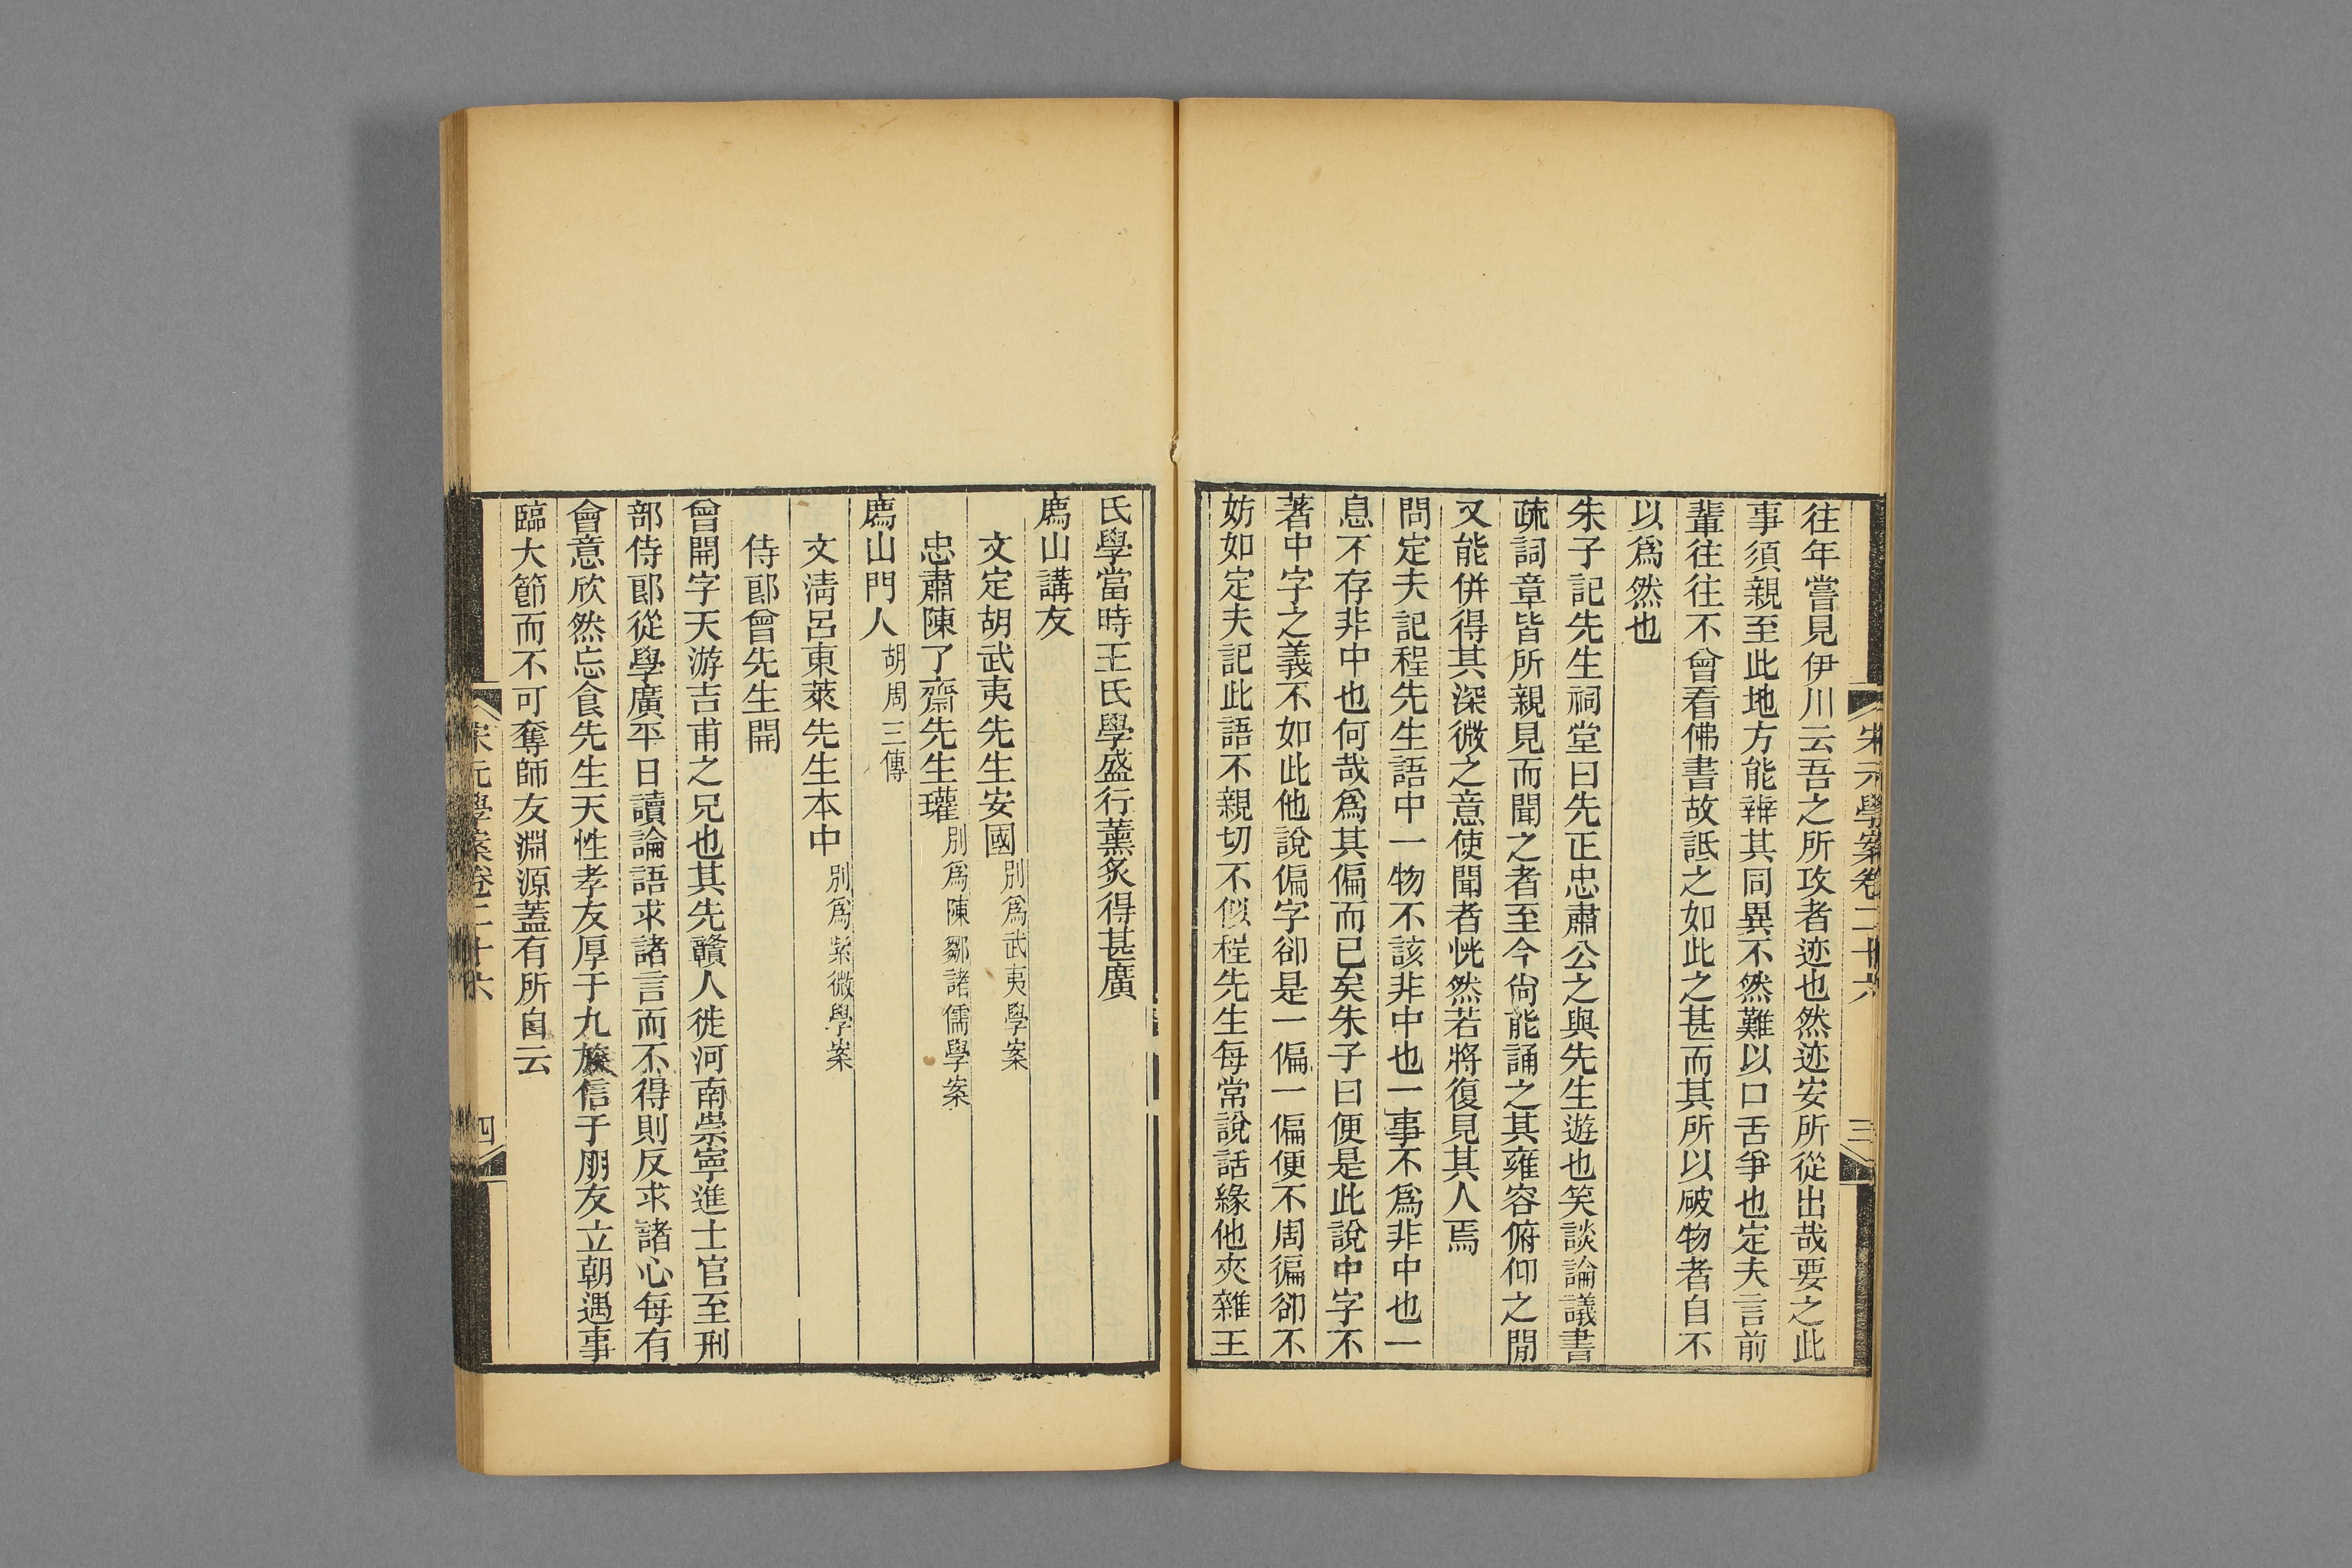 宋元學案卷二十六
三
往年嘗見伊川云吾之所攻者迹也然迹安所從出哉要之此
事須親至此地方能辨其同異不然難以口舌爭也定夫言前
輩往往不曾看佛書故詆之如此之甚而其所以破物者自不
以爲然也
朱子記先生祠堂曰先正忠肅公之與先生遊也笑談論議書
疏詞章皆所親見而聞之者至今尙能誦之其雍容俯仰之閒
又能併得其深微之意使聞者恍然若將復見其人焉
問定夫記程先生語中一物不該非中也一事不爲非中也一
息不存非中也何哉爲其偏而已矣朱子曰便是此說中字不
著中字之義不如此他說偏字卻是一偏一偏便不周徧卻不
妨如定夫記此語不親切不似程先生每常說話緣他夾雜王
氏學當時王氏學盛行薰炙得甚廣
廌山講友
文定胡武夷先生安國別爲武夷學案
忠肅陳了齋先生瓘別爲陳鄒諸儒學案
廌山門人胡周三傳
文淸呂東萊先生本中別爲紫微學案
侍郎曾先生開
曾開字天游吉甫之兄也其先贛人徙河南崇寧進士官至刑
部侍郎從學廣平日讀論語求諸言而不得則反求諸心每有
會意欣然忘食先生天性孝友厚于九族信于朋友立朝遇事
臨大節而不可奪師友淵源蓋有所自云
宋元學案卷二十六
四